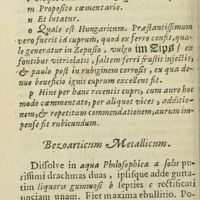 m Proposito cæmentario.
n Et lutatur.
o Quale est Hungaricum. Præstantissimum
vero fuerit id cuprum, quod ex ferro confit, qua-
le generatur in Zepusio, vulgo im Zips/ ex
fontibus vitriolatis, saltem ferri frustis injectis,
& paulo post in rubiginem corrosis, ex qua de-
nuo beneficio ignis cuprum excellens fit.
p Hinc per hanc recentis cupri, cum auro hoc
modo cæmentato, per aliquot vices, additio-
nem, & repetitam commendationem, aurum in-
tense fit rubicundum.
Bezoarticum Metallicum.
Dissolve in aqua Philosophica a solis pu-
rissimi drachmas duas, ipsique adde gutta-
tim liquoris gummosi b septies c rectificati
unciam unam. Fiet maxima ebullitio.